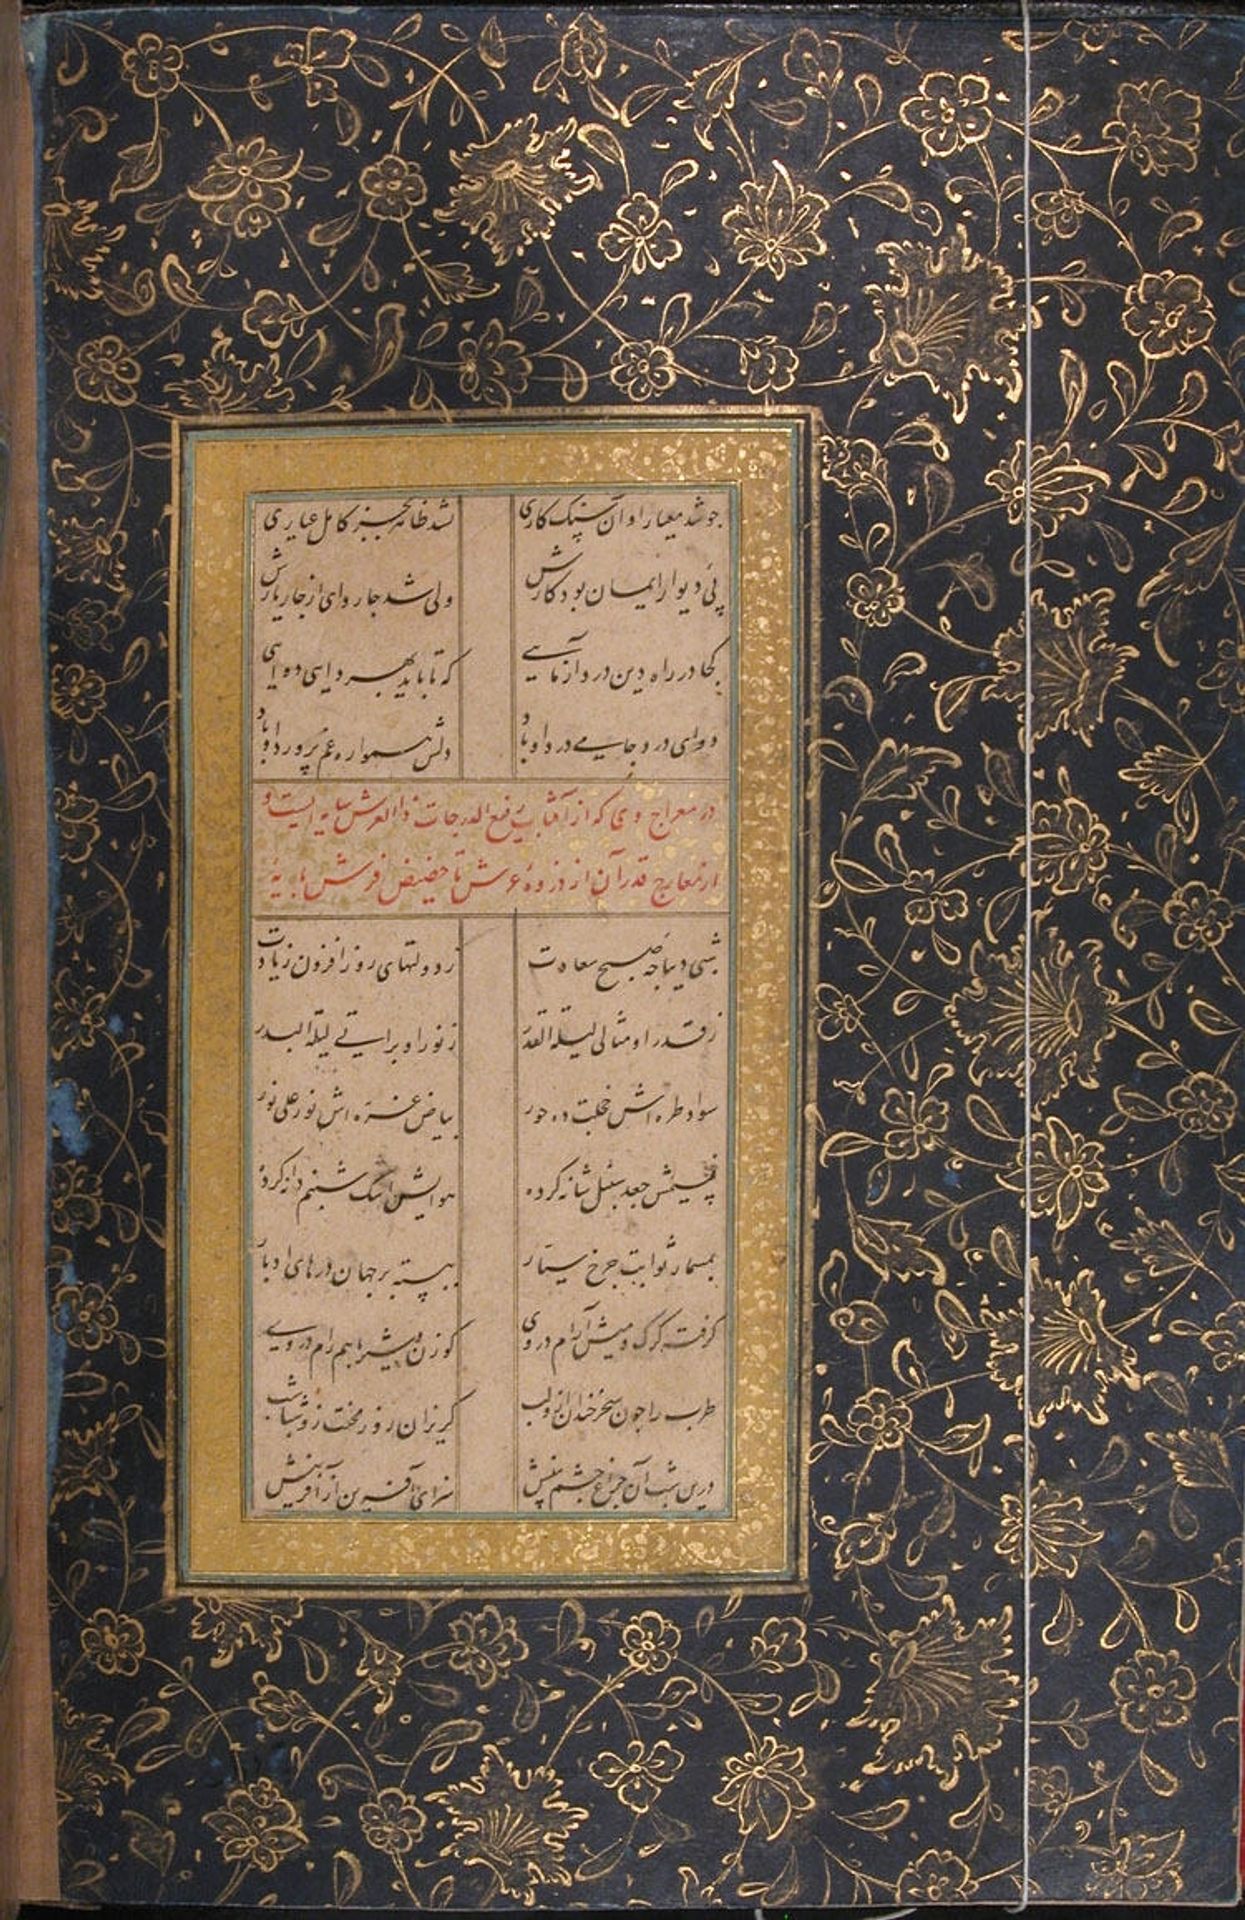 چو شد معیار او آن سنک کاری نشد خانه بجز کامل عیاری
پی دیوار ایمان بود کارش ولی شد چار دای از چار یارش
کجا در راه دین درد آزمایی که تا باید بهر دایی دوایی
دوای درد جامی درد او باد دلش همواره غم پرورد او باد
در معراج وی که از آفتاب رفیع الدرجات ذا العرش سایه ایست و
از معارج قدر آن از ذروه عرش تا حضیض فرش پایه
شبی دیباجه صبح سعادت ز دولتهای روز افزون زیادت
ز قدر او مثالی لیلة القدر ز نور او براتی لیلة البدر
سواد طره اش خجلت ده حور بیاض غره اش نور علی نور
نسیمش جعد سنبل شانه کرده هوایش اشک شبنم دانه کرده
بمسمار ثوابت چرخ سیار ببسته بر جهان درهای ادبار
گرفته گرگ و میش آرام در وی گوزن و شیر با هم رام در وی
طرب را چون سحر خندان ازو لب گریزان روز محنت زو شباشب
درین شب آن چراغ چشم بینش سزای آفرین از آفرینش